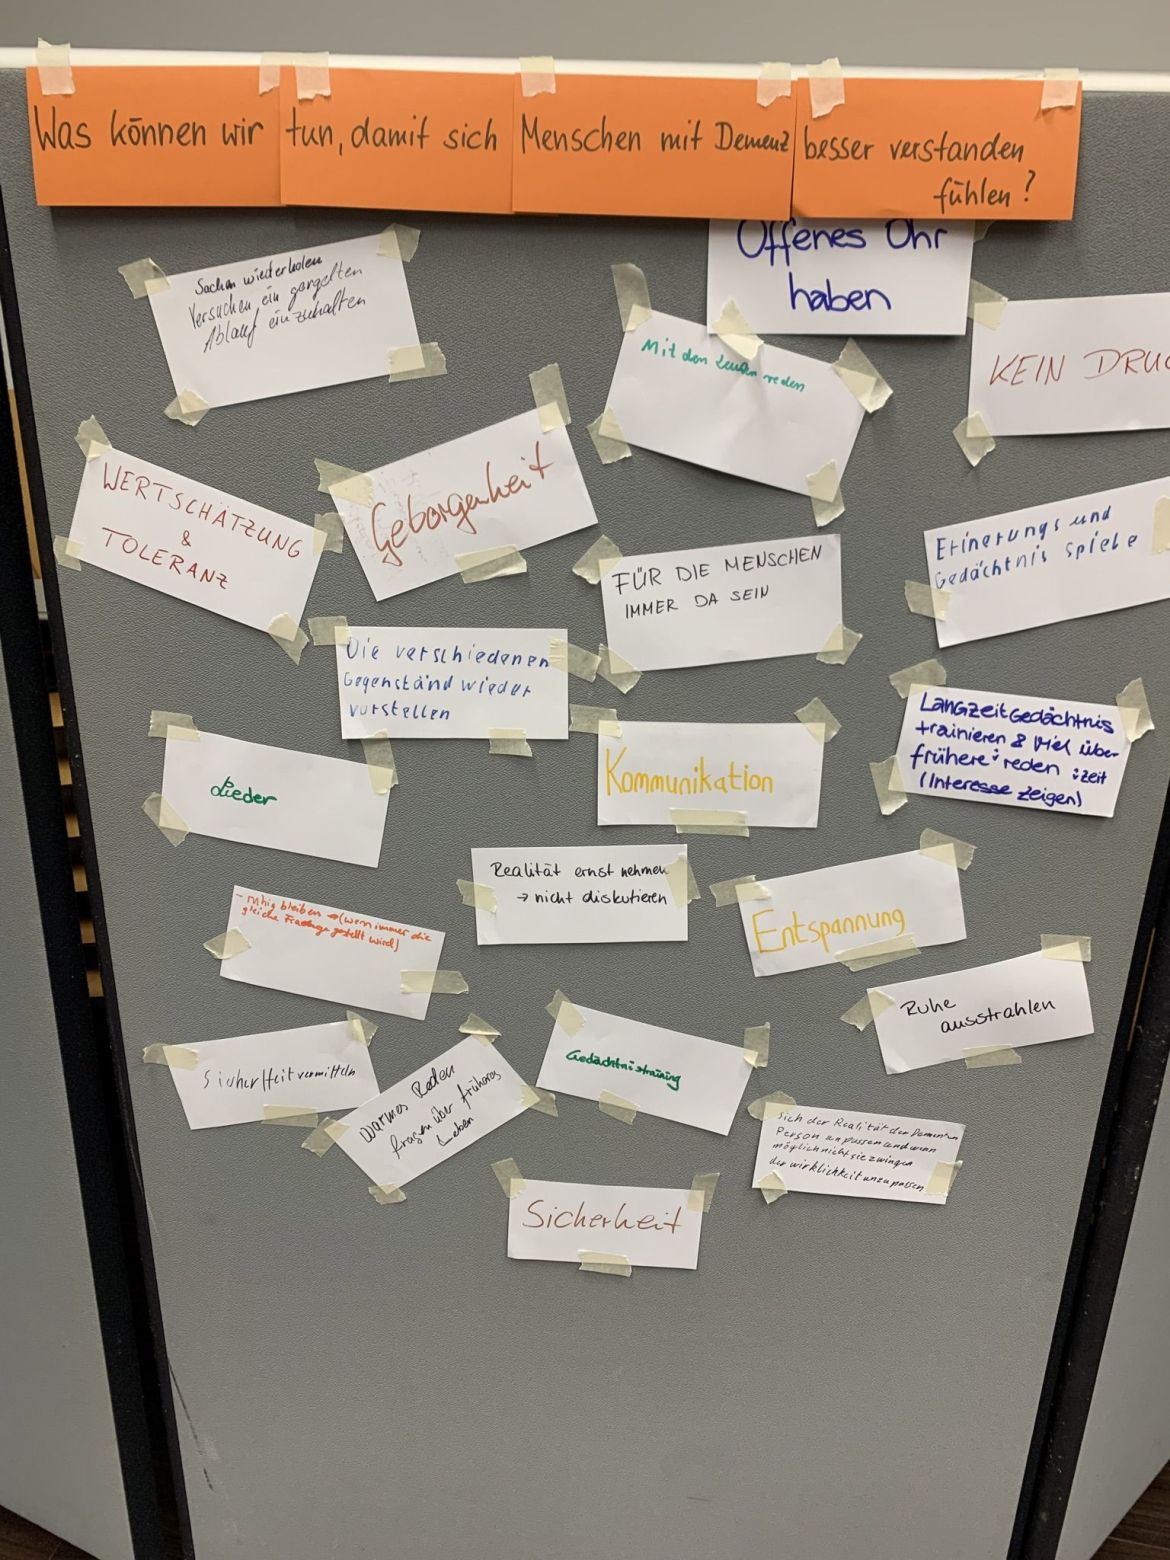 Was können wir tun, damit sich Menschen mit Demenz besser verstanden
fühlen?
Offenes Ohr
haben
Sachen wiederholen
Versuchen ein gergelten
Ablauf einzuhalten
Mit den Leuten reden
KEIN DRUC
WERTSCHÄTZUNG
&
TOLERANZ
Geborgenheit
FÜR DIE MENSCHEN
IMMER DA SEIN
Erinerungs und
Gedächtnis spiele
Die verschiedenen
Gegenständ wieder
vorstellen
Langzeitgedächtnis
trainieren & viel über
frühere: reden :zeit
(Interesse zeigen)
Lieder
Kommunikation
Realität ernst nehmen
→ nicht diskutieren
Entspannung
- ruhig bleiben → (wenn immer die
gleiche gestellt wird)
Ruhe
ausstrahlen
Sicherheit vermitteln
Warmes Reden
fragen über früheres
Leben
Gedächtnistraining
Sich der Realität der
Person anpassen und wenn
möglich nicht sie zwingen
der wirklichkeit anzupassen
Sicherheit